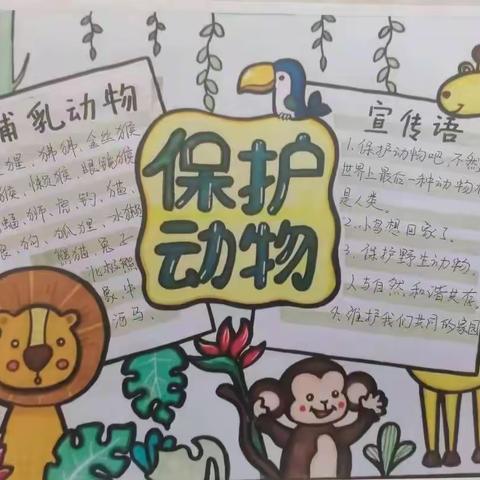 哺乳动物
狸、狒狒、金丝猴
猴、懒猴、眼镜猴
蝠、狮、虎、豹、猫、
狼、狗、狐狸、水獭
熊猫、兔子
北极熊
象、牛
河马、
保护
动物
宣传语
1.保护动物吧,不然
世界上最后一种动物
是人类。
2.小鸟想回家了。
3、保护野生动物。
人与自然和谐共存。
4、维护我们共同的家园